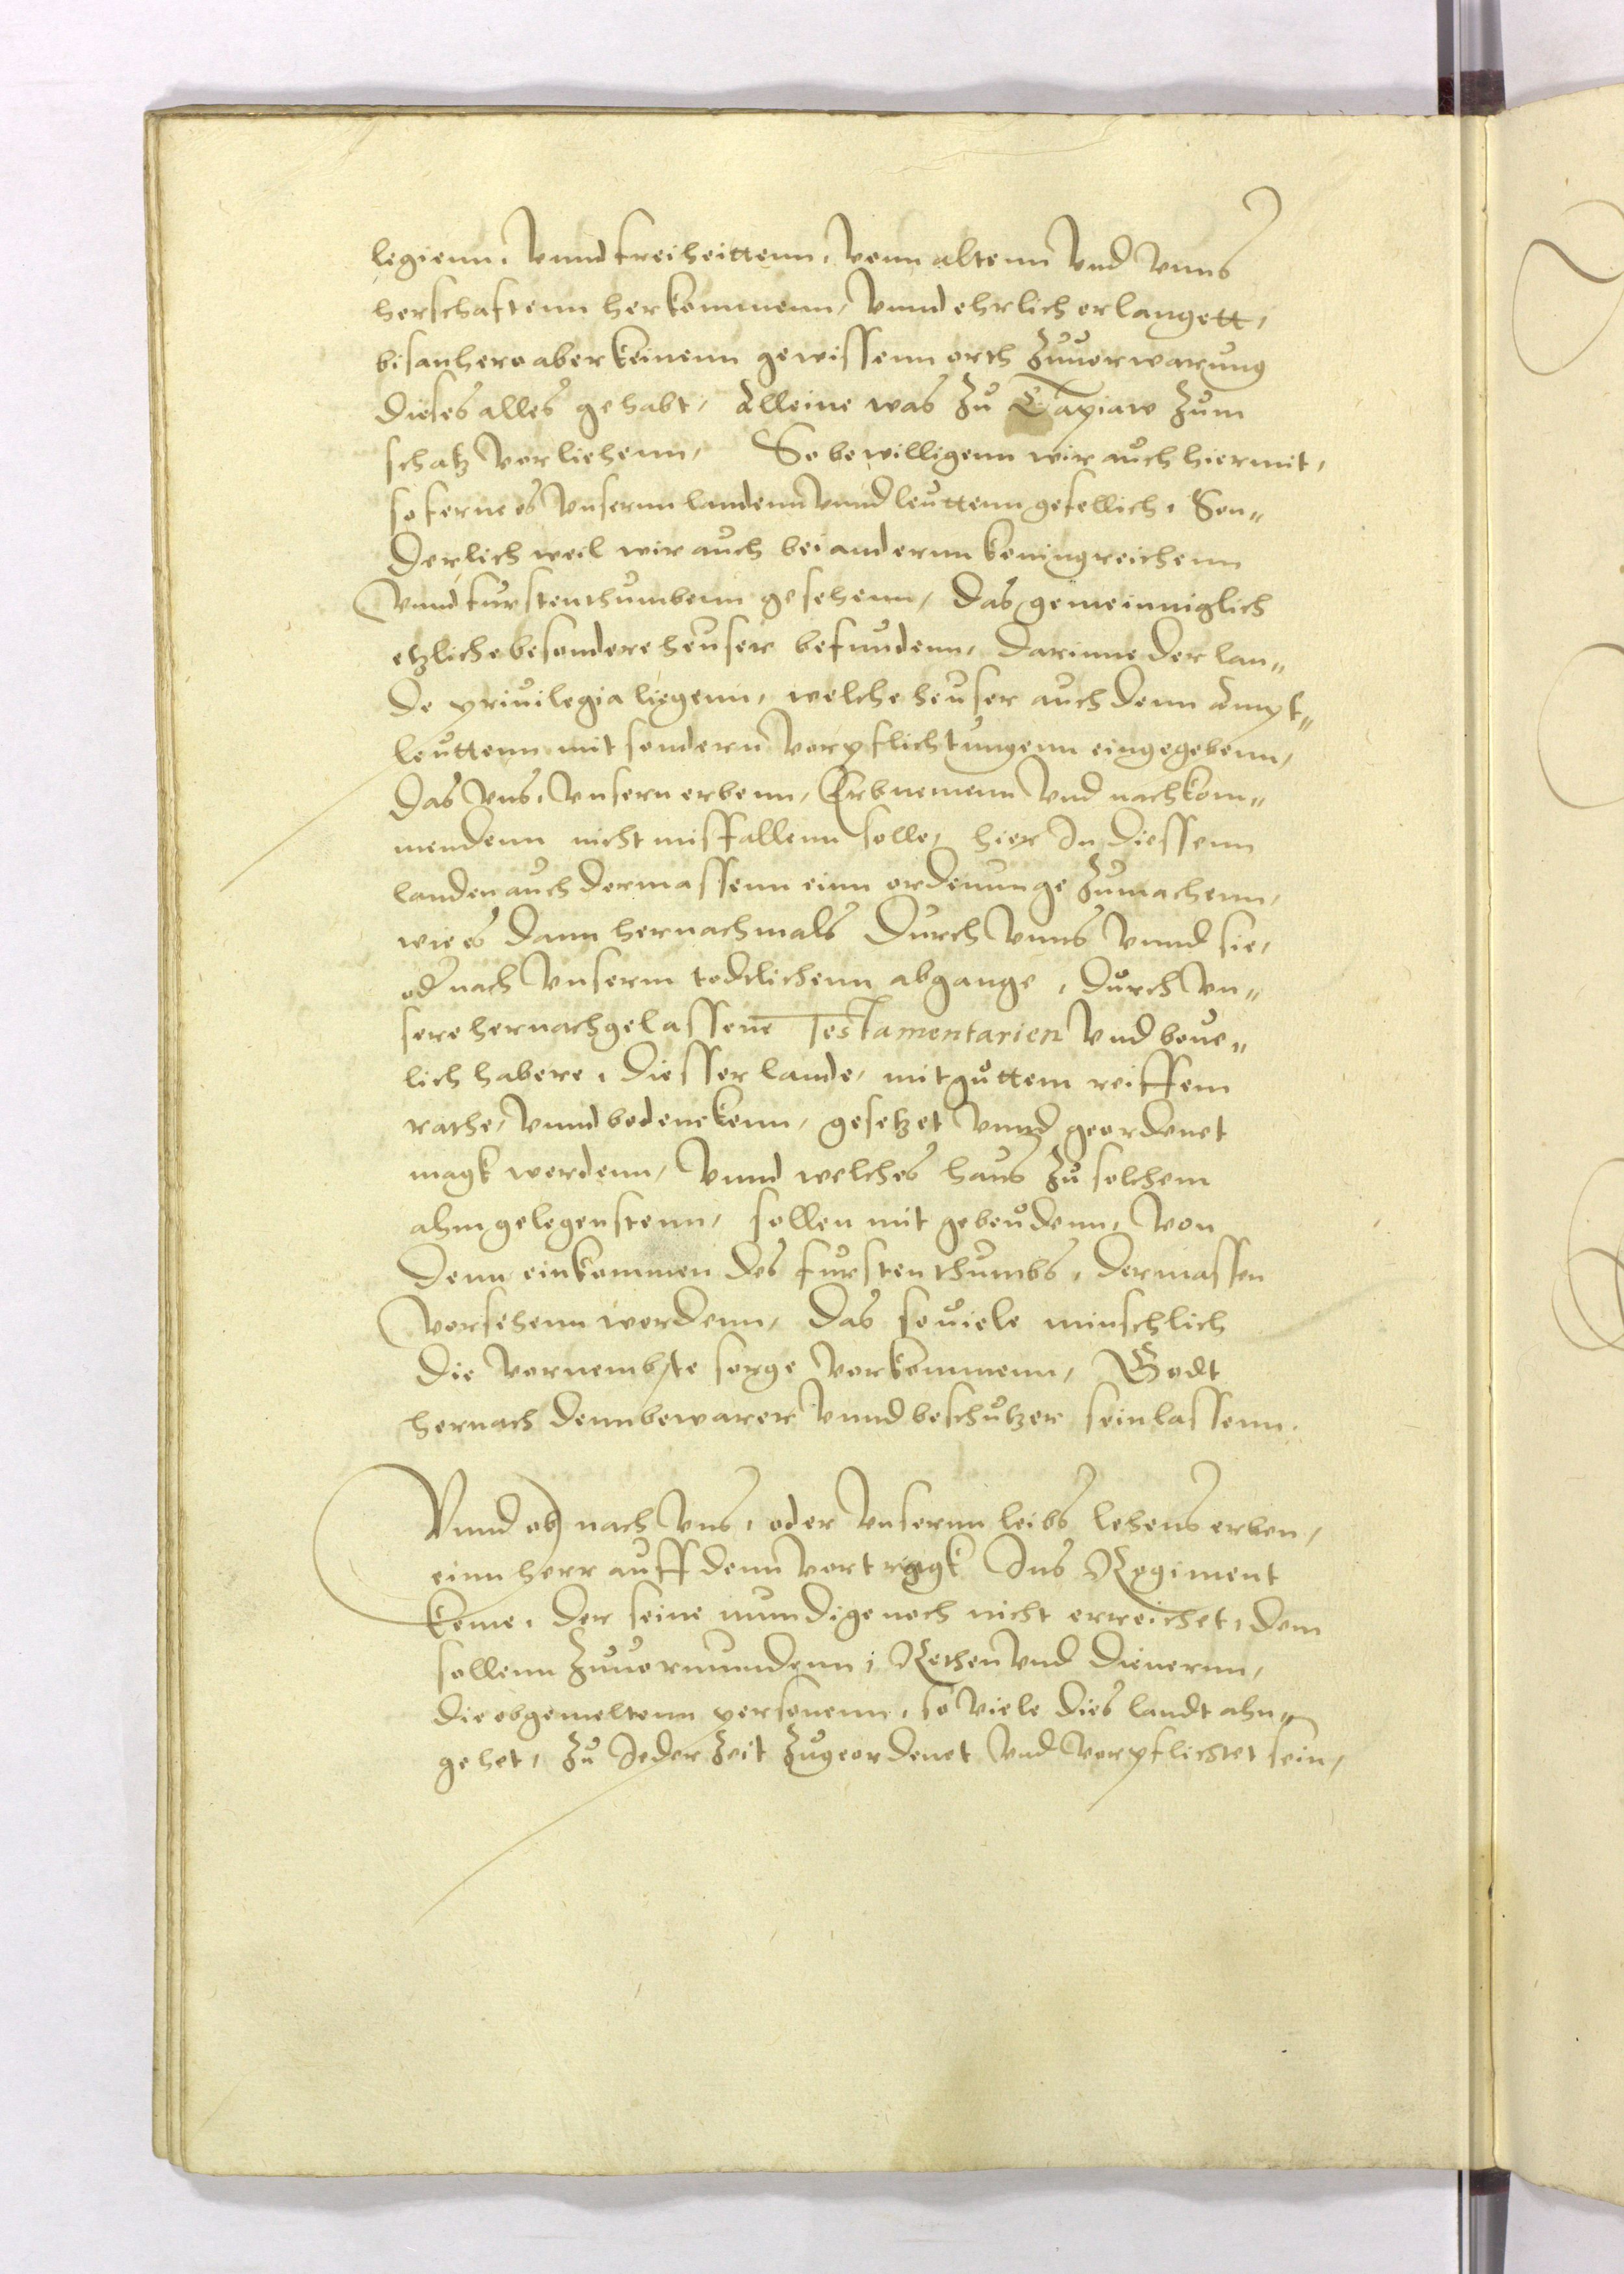 legienn, vnnd freiheittenn, vonn altenn vnd vnns
herschaftenn herkommenn, vnnd ehrlich erlangett,
bisanhero aber keinenn gewissenn orth zuuorwarung
dieses alles gehabt, Alleine was zu Tapiaw zum
schatz vorliehenn, So bewilligenn wir auch hiermit,
soferne es vnsernn landenn vnnd leuttenn gefellich, Son„
derlich weil wir auch bei andernn koningreichenn
vnnd furstenthumbenn gesehenn, das gemeinniglich
etzliche besondere heuser befundenn, darinne der lan„
de priuilegia liegenn, welche heuser auch denn Ampt„
leuttenn mit sondern vorpflichtungenn eingegebenn,
das vns, vnsern erbenn, Erbnemenn vnd nachkom„
mendenn nicht misfallenn solle, hier In diessenn
landen auch dermassenn einn ordenunge zumachenn,
wie es dann hernachmals durch vnns vnnd sie,
od nach vnserm todtlichenn abgange, durch vn„
sere hernachgelassene Testamentarien vnd beue„
lich habere, diesser lande, mit guttem reiffem
rathe, vnnd bedenckenn, gesetzet vnnd geordenet
magk werdenn, vnnd welches haus zu solchem
ahm gelegenstenn, sollen mit gebeudenn, von
denn einkommen des furstenthumbs, dermassen
vorsehenn werdenn, das souiele minschlich
die vornembste sorge vorkommenn, Godt
hernach denn bewarer vnnd beschutzer sein lassenn.
Vnnd ob nach vns, oder vnsernn leibs lehens erben,
einn herr auff denn vortragk Ins Regiment
keme, der seine mundige noch nicht erreichet, dem
sollenn zuuormundenn, Rethen vnd dienernn,
die obgemeltenn personenn, so viele dies landt ahn„
gehet, zu Ieder zeit zugeordenet vnd vorpflichtet sein,